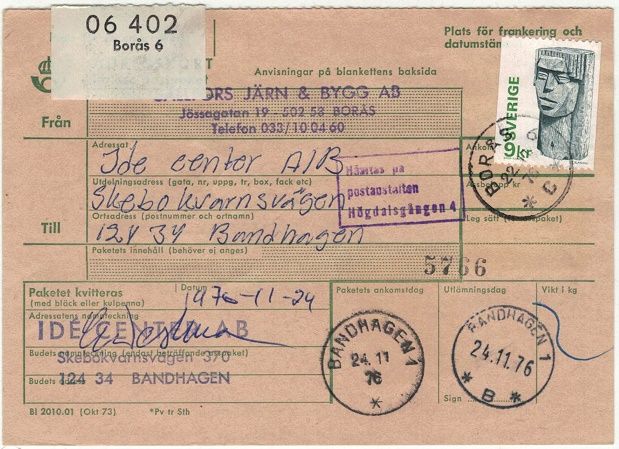 06 402
Borås 6
Plats för frankering och
Anvisningar på blankettens baksida
SVERIGE
9 kr
JÄRN & BYGG AB
Från
Jössagatan 19 502 53 BORÅS
Telefon 033/10 04 60
BORÅS
22
76
* C
Adressat
Ide center A/B
Utdelningsadress (gata, nr, uppg, tr, box, fack etc)
Skebokvarnsvägen
Ortsadress (postnummer och ortnamn)
Till
124 34 Bandhagen
Hämtas på
postanstalten
Högdalsgången 4
Paketets innehåll (behöver ej anges)
5766
Paketet kvitteras
(med bläck eller kulpenna)
Datum
1976-11-24
Adressatens namnteckning
IDÉ CENTER AB
Skebokvarnsvägen 370
124 34 BANDHAGEN
Paketets ankomstdag
BANDHAGEN 1
24.11
76
*
Utlämningsdag
Vikt i kg
BANDHAGEN 1
24.11.76
* B *
Sign
BI 2010.01 (Okt 73) *Pv tr Sth